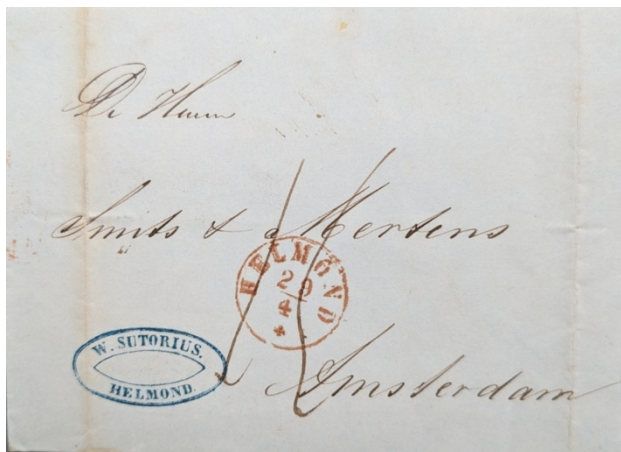 De Heeren
Smits & Mertens
HELMOND
29
4
W. SUTORIUS.
HELMOND.
Amsterdam